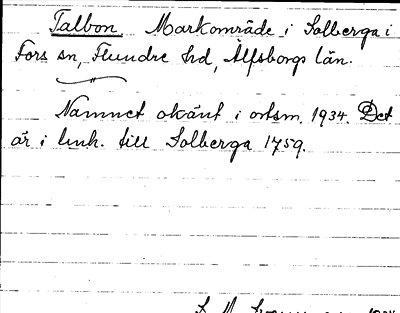 Talbon. Markområde i Solberga i
Fors sn, Flundre hd, Älfsborgs län.
Namnet okänt i ortsm. 1934. Det
är i link. till Solberga 1759.